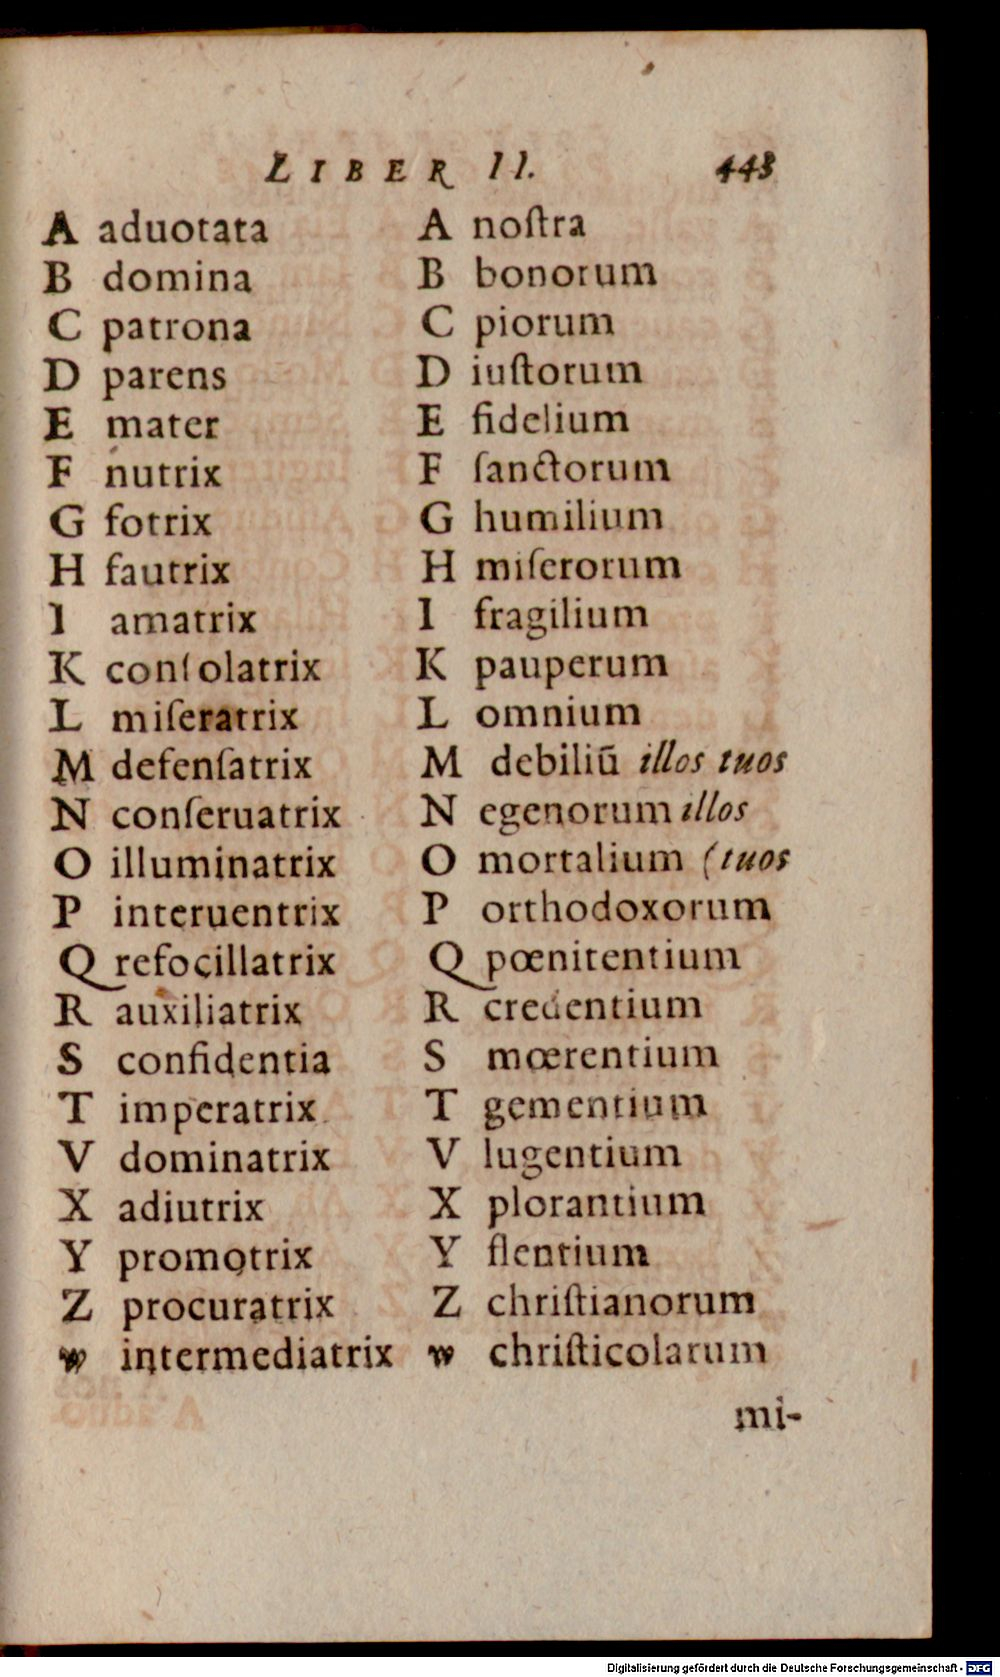 LIBER II. 443
A aduotata
B domina
C patrona
D parens
E mater
F nutrix
G fotrix
H fautrix
I amatrix
K conſolatrix
L miſeratrix
M defenſatrix
N conſeruatrix
O illuminatrix
P interuentrix
Q refocillatrix
R auxiliatrix
S confidentia
T imperatrix
V dominatrix
X adiutrix
Y promotrix
Z procuratrix
w intermediatrix
A noſtra
B bonorum
C piorum
D iuſtorum
E fidelium
F ſanctorum
G humilium
H miſerorum
I fragilium
K pauperum
L omnium
M debiliū illos tuos
N egenorum illos
O mortalium (tuos
P orthodoxorum
Q pœnitentium
R credentium
S mœrentium
T gementium
V lugentium
X plorantium
Y flentium
Z chriſtianorum
w chriſticolarum
mi-
Digitalisierung gefördert durch die Deutsche Forschungsgemeinschaft - DFG